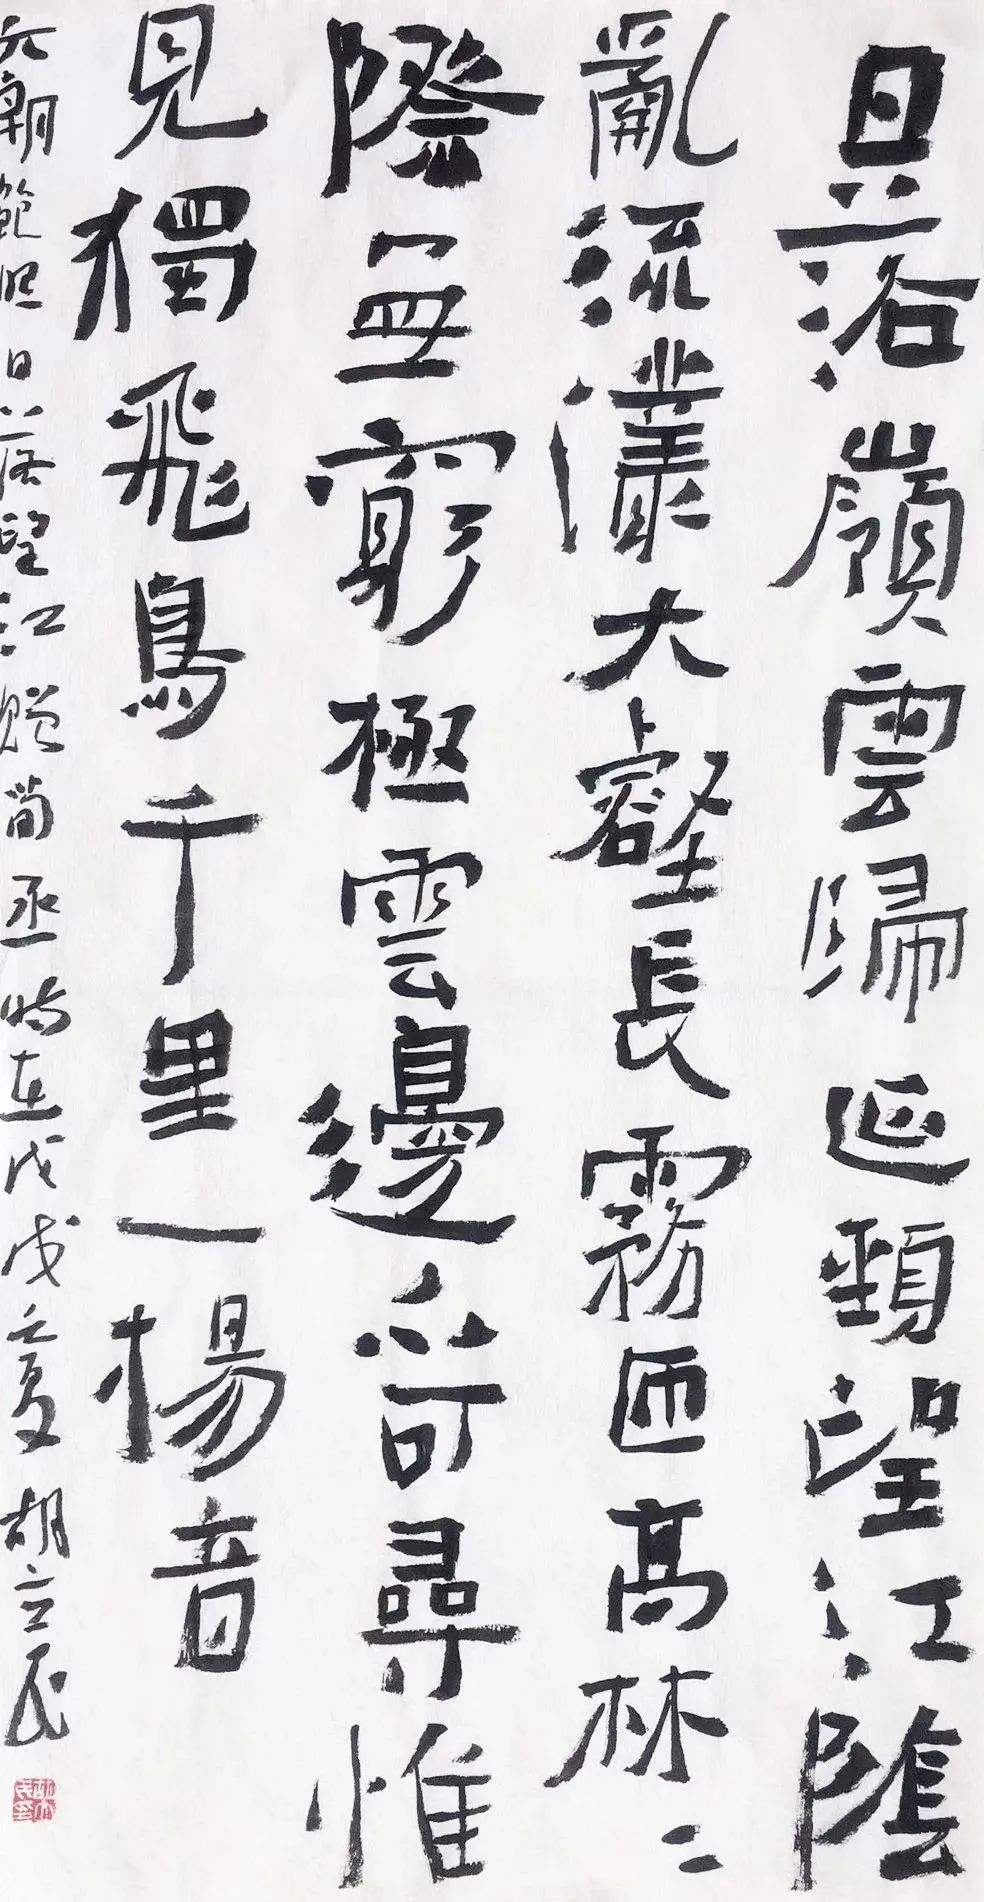 日落嶺雲歸延頸望江陰
亂流灇大壑長霧匝高林二
際無窮極雲邊不可尋惟
見獨飛鳥千里一楊音
六朝範雲日落望江贈荀丞時在戊戌之夏胡立民